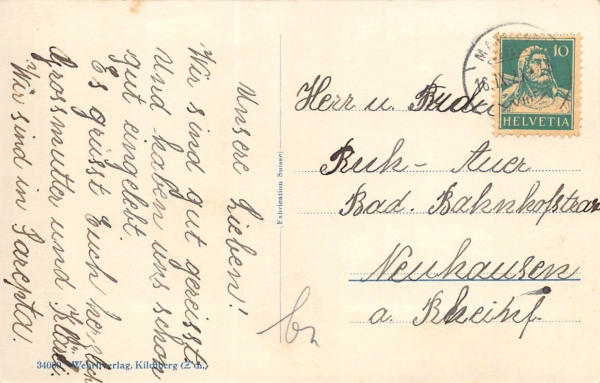 Unsere Lieben!
Wir sind gut gereisst.
Und haben uns schon
gut eingelebt.
Es grüsst Euch herzlich
Grossmutter und
Wir sind in Sarepta.
Fabrication Suisse
10
HELVETIA
Herr u.
Ruh-Auer
Bad. Bahnhofstras
Neuhausen
a. Rheinf.
Wehrliverlag, Kilchberg (Zch.)